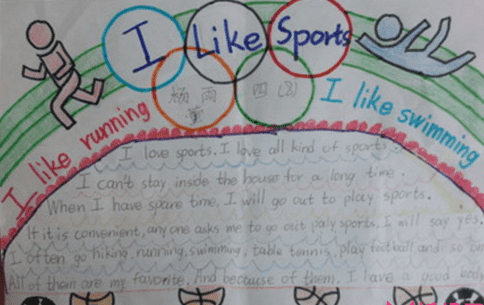 I Like Sports
杨雨 四(3)
I like running
I like swimming
I love sports. I love all kind of sports.
I can't stay inside the house for a long time.
When I have spare time, I will go out to play sports.
If it is convenient, any one asks me to go out paly sports, I will say yes.
I often go hiking, running, swimming, table tennis, play football and so on
All of them are my favorite. And because of them, I have a good body